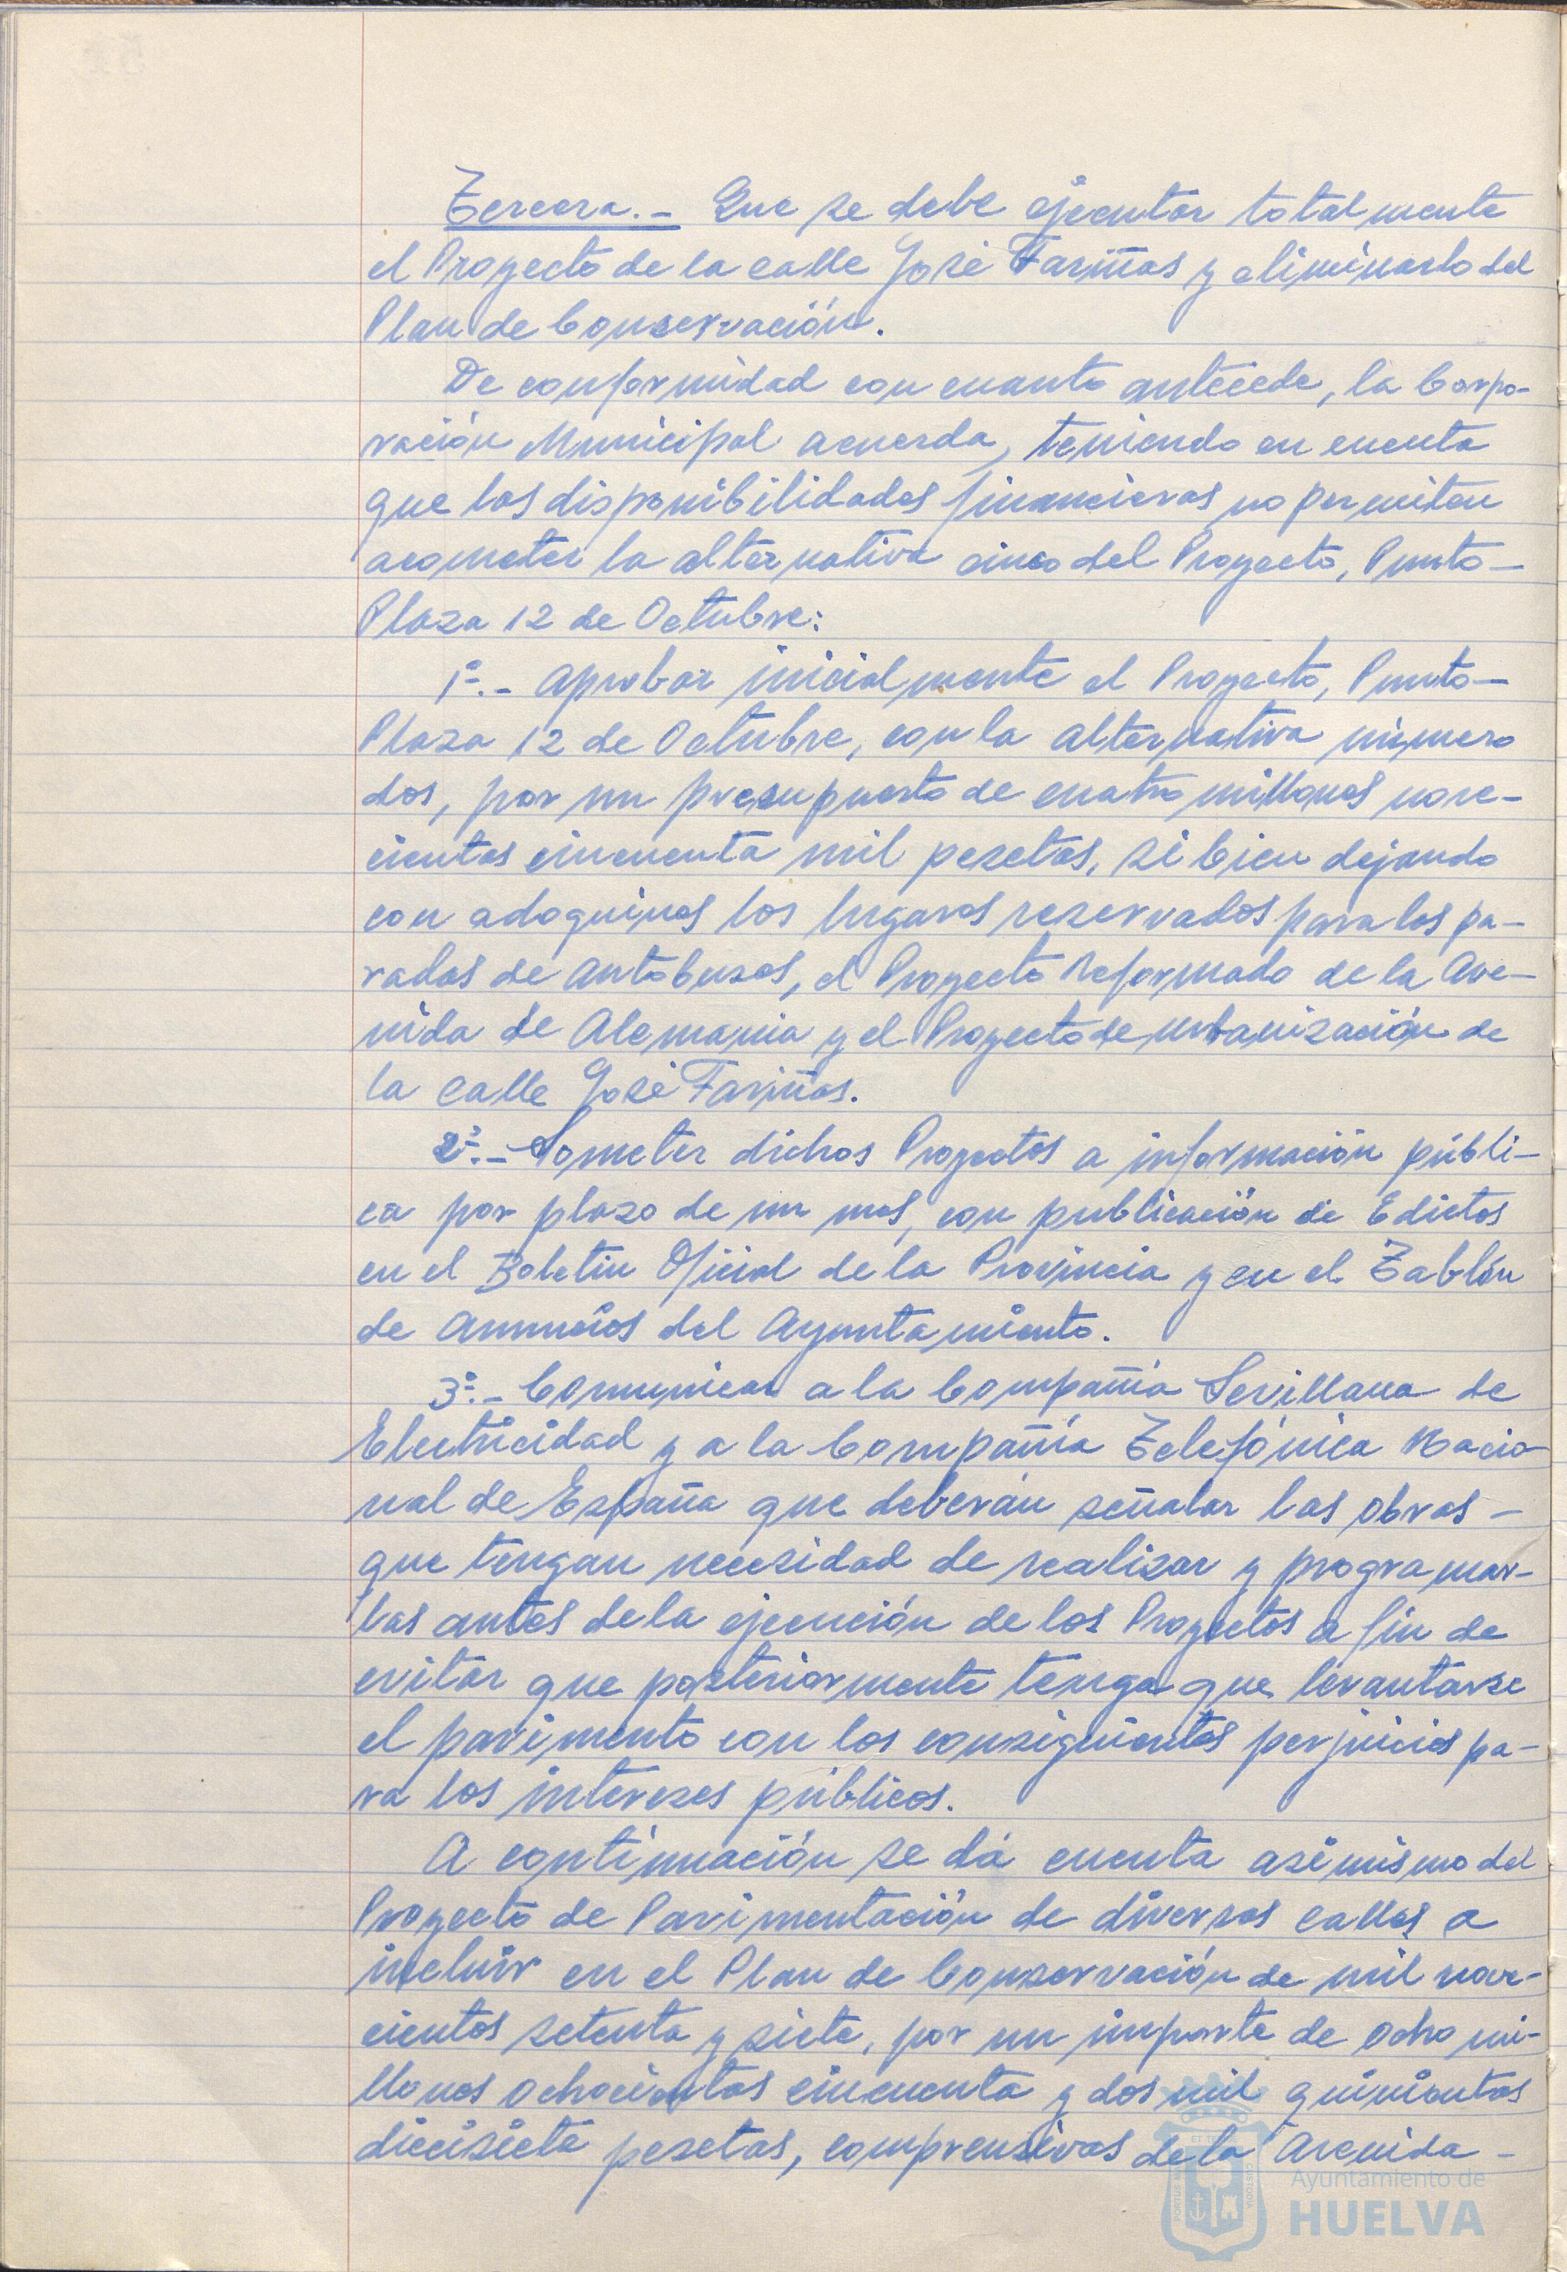 Tercera.- Que se debe ejecutar totalmente
el Proyecto de la calle José Fariñas y eliminarlo del
Plan de Conservación.
De conformidad con cuanto antecede, la Corpo-
ración Municipal acuerda, teniendo en cuenta
que las disponibilidades financieras no permiten
acometer la alternativa cinco del Proyecto, Punto-
Plaza 12 de Octubre:
1º.- Aprobar inicialmente el Proyecto, Punto-
Plaza 12 de Octubre, con la alternativa número
dos, por un presupuesto de cuatro millones nove-
cientas cincuenta mil pesetas, si bien dejando
con adoquines los lugares reservados para las pa-
radas de autobuses, el Proyecto Reformado de la Ave-
nida de Alemania y el Proyecto de urbanización de
la calle José Fariñas.
2º.- Someter dichos Proyectos a información públi-
ca por plazo de un mes, con publicación de Edictos
en el Boletin Oficial de la Provincia y en el Tablón
de Anuncios del Ayuntamiento.
3º.- Comunicar a la Compañía Sevillana de
Electricidad y a la Compañía Telefónica Nacio-
nal de España que deberán señalar las obras -
que tengan necesidad de realizar y programar-
las antes de la ejecución de los Proyectos a fin de
evitar que posteriormente tenga que levantarse
el pavimento con los consiguientes perjuicios pa-
ra los intereses públicos.
A continuación se dá cuenta asimismo del
Proyecto de Pavimentación de diversas calles a
incluir en el Plan de Conservación de mil nove-
cientos setenta y siete, por un importe de ocho mi-
llones ochocientas cincuenta y dos mil quinientas
diecisiete pesetas, comprensivas de la Avenida -
Ayuntamiento de
HUELVA